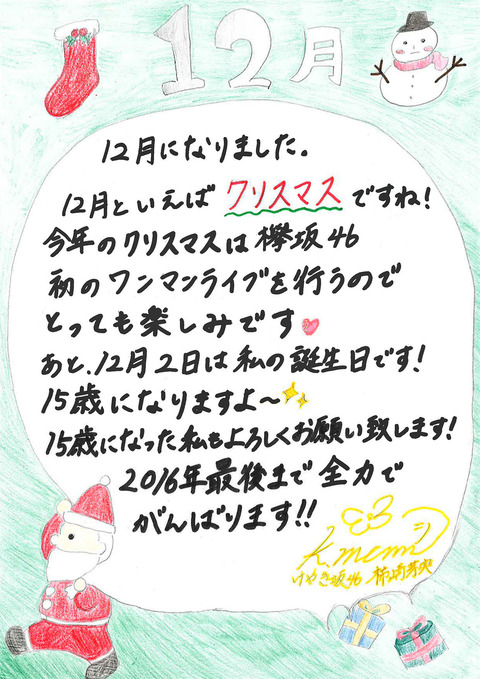 12月
12月になりました。
12月といえばクリスマスですね!
今年のクリスマスは欅坂46
初のワンマンライブを行うので
とっても楽しみです
あと、12月2日は私の誕生日です!
15歳になりますよ〜
15歳になった私もよろしくお願い致します!
2016年最後まで全力で
がんばります!!
K.memi
けやき坂46 柿崎芽実